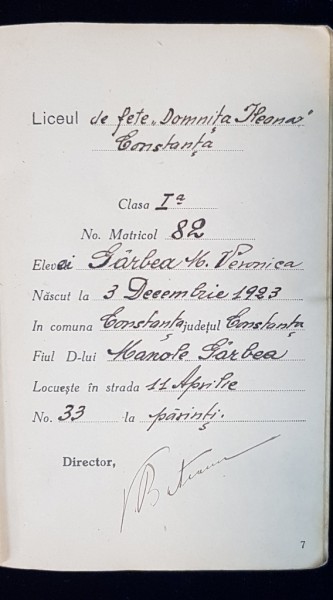 Liceul de fete „Domnița Ileana"
Constanța
Clasa Iª
No. Matricol 82
Elevei Gârbea M. Veronica
Născut la 3 Decembrie 1923
In comuna Constanța județul Constanța
Fiul D-lui Manole Gârbea
Locuește în strada 11 Aprilie
No. 33 la părinți.
Director,
7